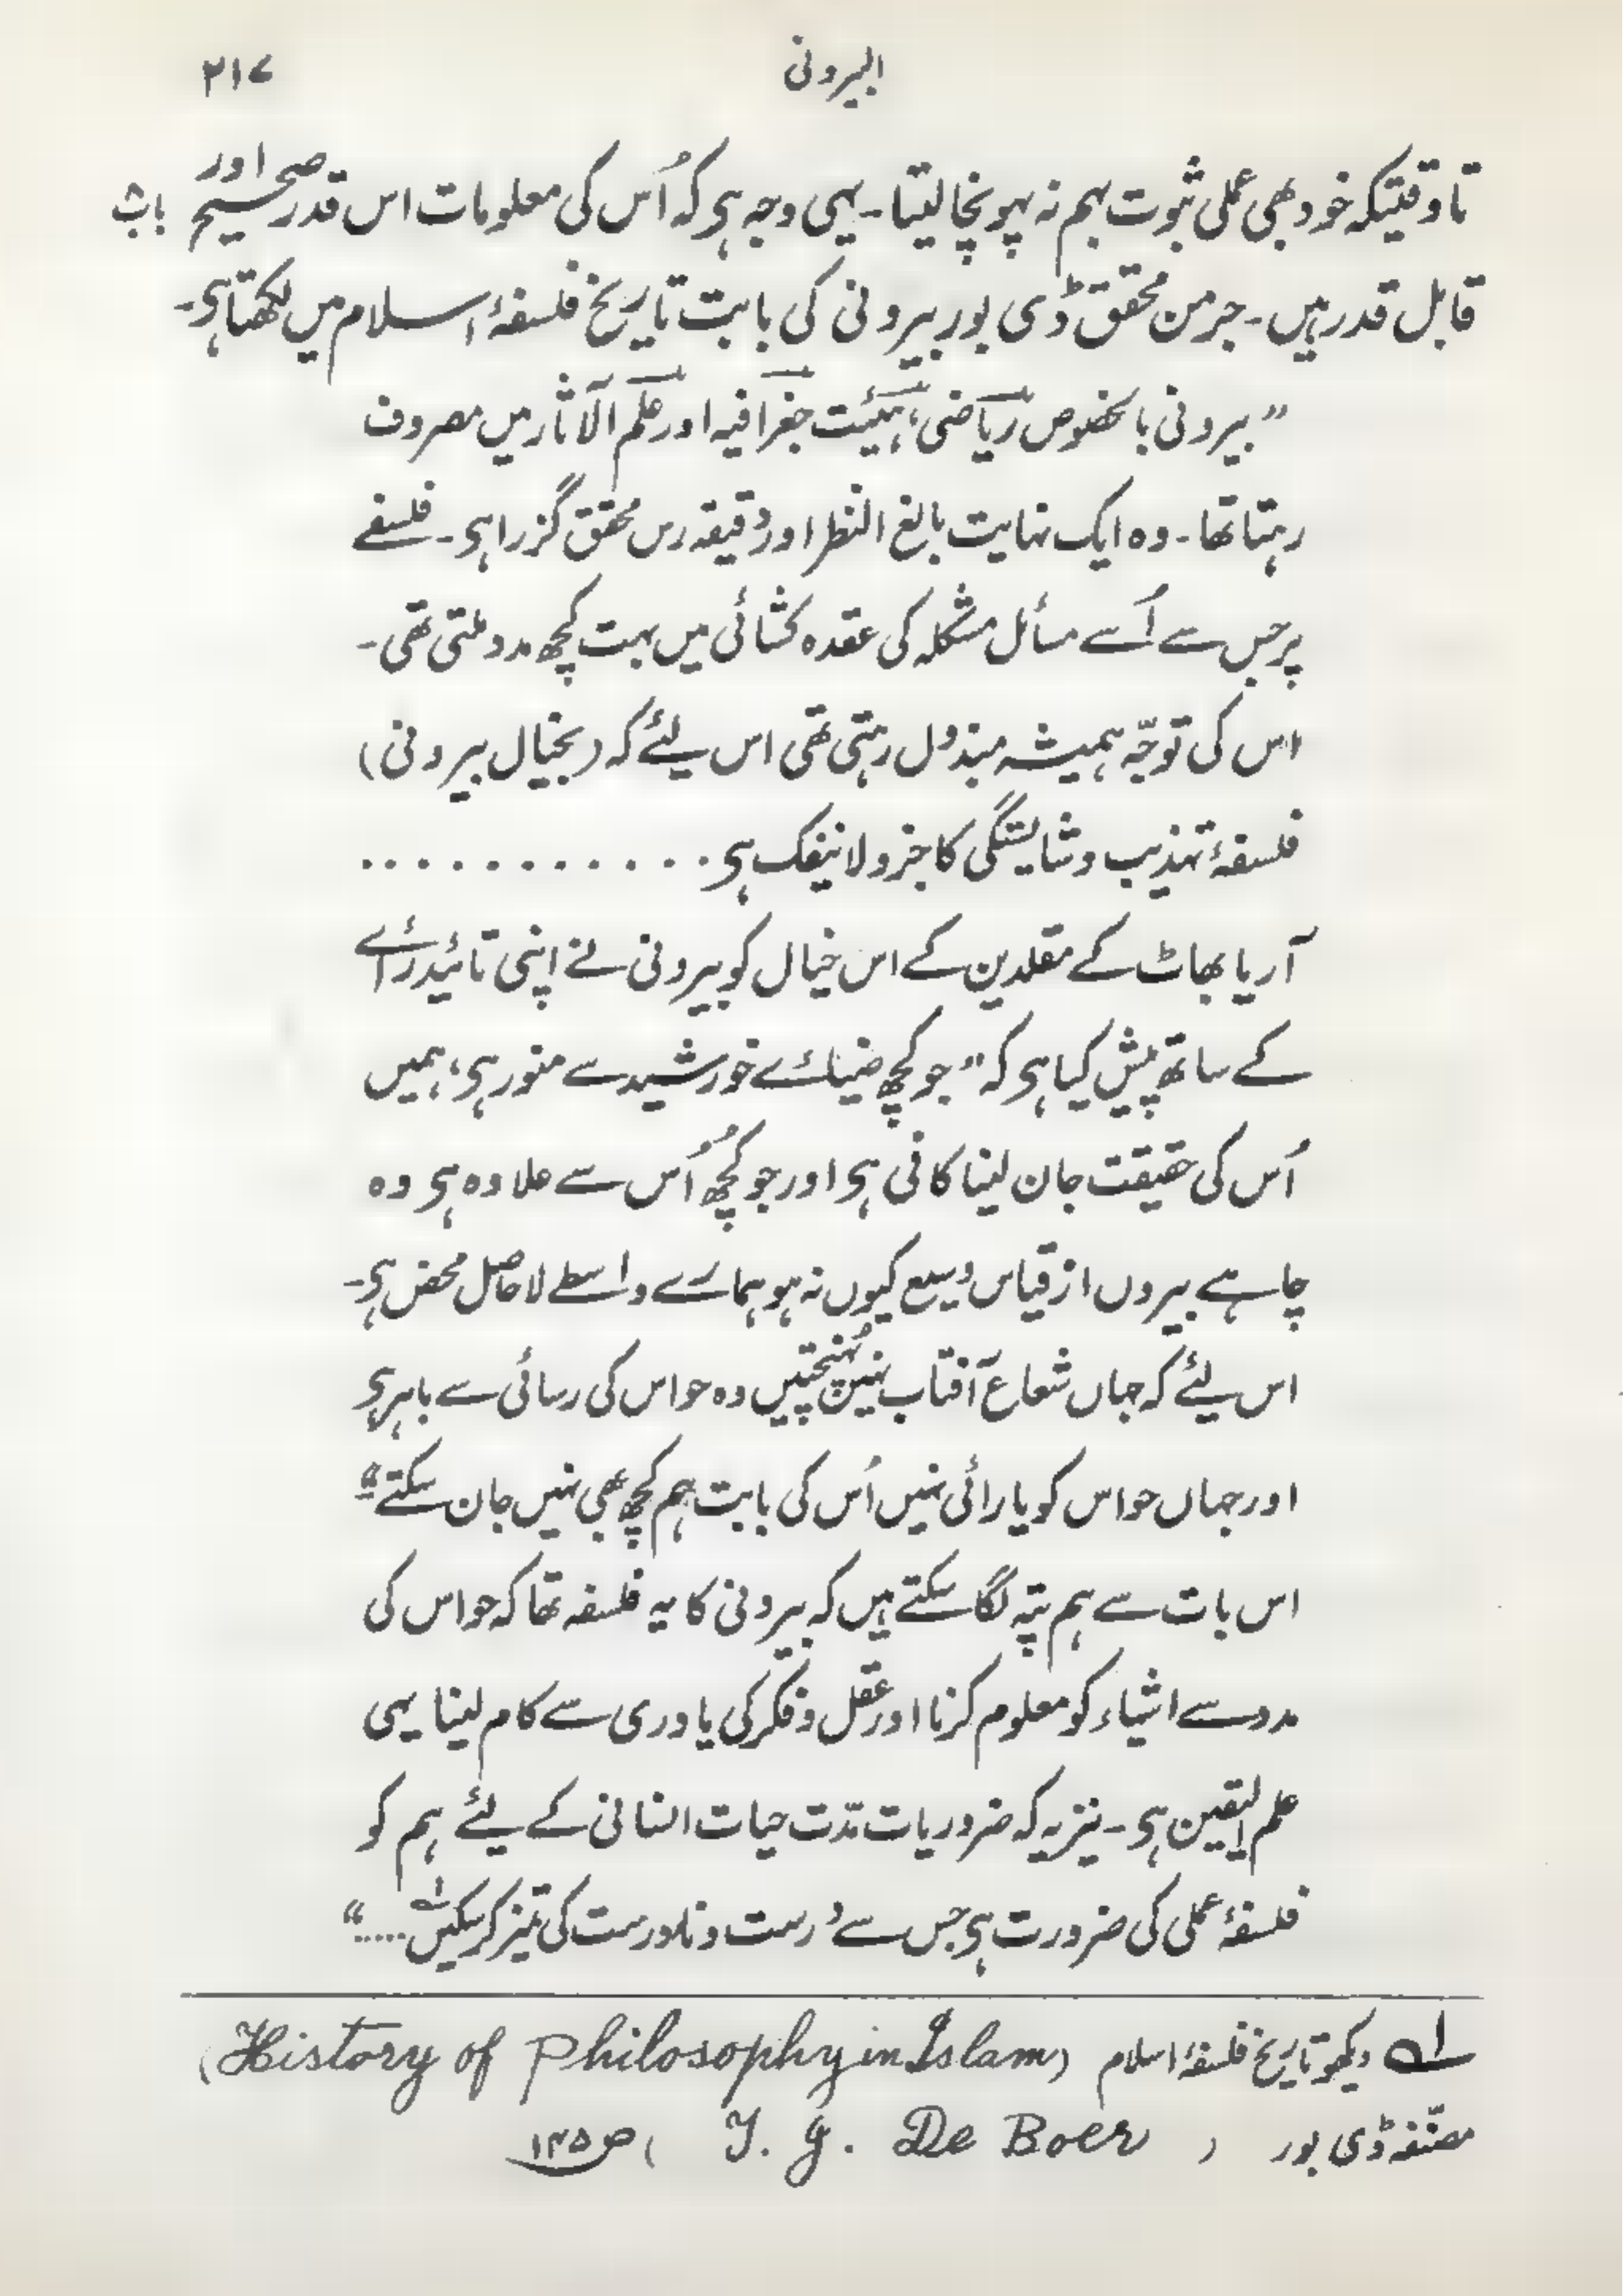 البیرونی ۲۱۷
تاوقتیکہ خود بھی عملی ثبوت بہم نہ پہونچا لیتا۔ یہی وجہ ہی کہ اُس کی معلومات اس قدر صحیح اور
قابل قدر ہیں۔ جرمن محقق ڈی بور بیرونی کی بابت تاریخ فلسفۂ اسلام میں لکھتا ہی۔
”بیرونی بالخصوص ریاضی، ہیئت جغرافیہ اور علم الآثار میں مصروف
رہتا تھا۔ وہ ایک نہایت بالغ النظر اور دقیقہ رس محقق گزرا ہی۔ فلسفے
پر جس سے اُسے مسائل مشکلہ کی عقدہ کشائی میں بہت کچھ مدد ملتی تھی۔
اس کی توجّہ ہمیشہ مبذول رہتی تھی اس لیئے کہ (بخیال بیرونی)
فلسفۂ تہذیب و شایستگی کا جزو لا ینفک ہی . . . . . . . . . . . .
آریا بھاٹ کے مقلدین کے اس خیال کو بیرونی نے اپنی تائید رائے
کے ساتھ پیش کیا ہی کہ ”جو کچھ ضیائے خورشید سے منور ہی، ہمیں
اُس کی حقیقت جان لینا کافی ہی اور جو کُچھ اُس سے علاوہ ہی وہ
چاہے بیروں از قیاس وسیع کیوں نہ ہو ہمارے واسطے لا حاصل محض ہی۔
اس لیئے کہ جہاں شعاع آفتاب نہیں پہُنچتیں وہ حواس کی رسائی سے باہر ہی
اور جہاں حواس کو یارائی نہیں اُس کی بابت ہم کچھ بھی نہیں جان سکتے“
اس بات سے ہم پتہ لگا سکتے ہیں کہ بیرونی کا یہ فلسفہ تھا کہ حواس کی
مدد سے اشیاء کو معلوم کرنا اور عقل و فکر کی یاوری سے کام لینا یہی
علم الیقین ہی۔ نیز یہ کہ ضروریات مدّت حیات انسانی کے لیئے ہم کو
فلسفۂ عملی کی ضرورت ہی جس سے دُرست و نادرست کی تمیز کر سکیں لہ.....“
لہ دیکھو تاریخ فلسفۂ اسلام (History of Philosophy in Islam)
مصنّفہ ڈی بور (T. J. De Boer) ص۱۴۵